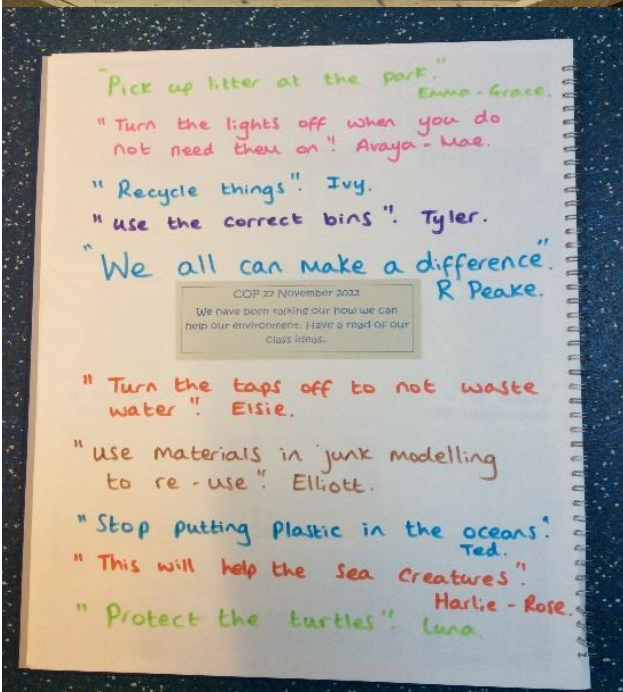 "Pick up litter at the park."
Emma-Grace.
"Turn the lights off when you do
not need them on". Avaya-Mae.
"Recycle things". Ivy.
"use the correct bins". Tyler.
"We all can make a difference".
R Peake.
COP 27 November 2022
We have been talking our how we can
help our environment. Have a read of our
class ideas.
"Turn the taps off to not waste
water". Elsie.
"use materials in junk modelling
to re-use". Elliott.
"Stop putting plastic in the oceans".
Ted.
"This will help the sea creatures".
Harlie-Rose.
"Protect the turtles". Luna.